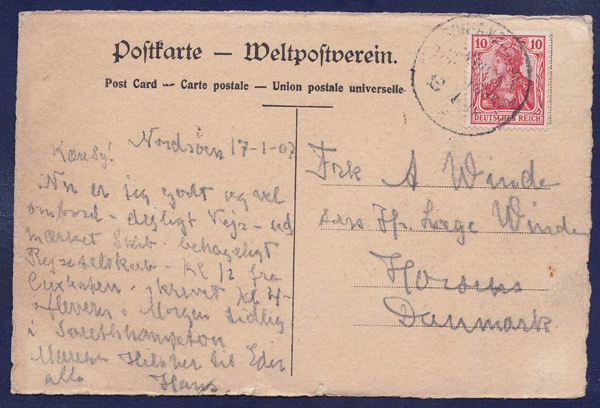 Postkarte — Weltpostverein.
Post Card — Carte postale — Union postale universelle
10 10
DEUTSCHES REICH
Nordsøen 17-1-07
Kære
Nu er jeg godt og vel
ombord - dejligt Vejr - ud
mærket Skib - behageligt
Rejseselskab - Kl 12 fra
Cuxhafen - skrevet Kl 4-
afleveres i Morgen tidlig
i Southhampton
Mange Hilsner til Eder
alle
Hans
Frk A Winde
Hr. Læge Winde
Horsens
Danmark